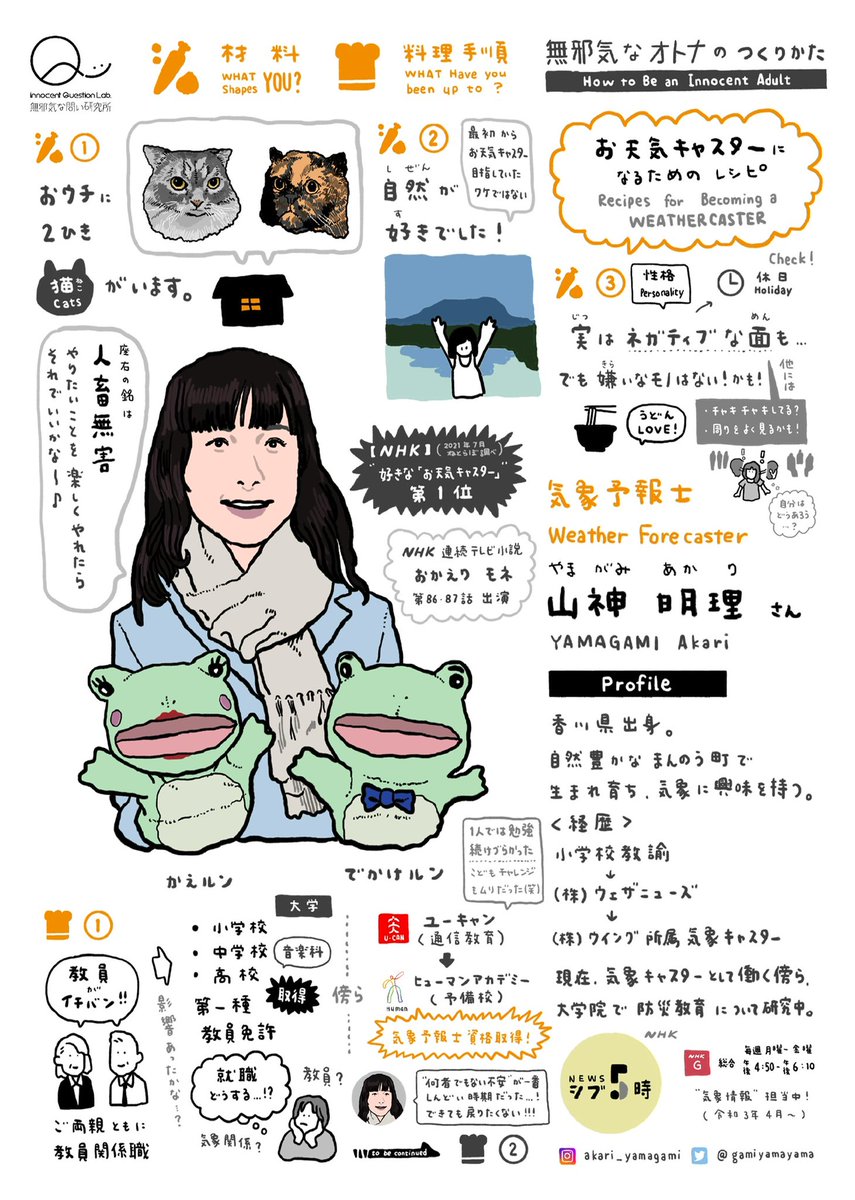 innocent Question Lab.
無邪気な問い研究所
材料
WHAT Shapes YOU?
料理手順
WHAT Have you been up to ?
無邪気なオトナのつくりかた
How to Be an Innocent Adult
お天気キャスターに
なるための レシピ
Recipes for Becoming a
WEATHERCASTER
①
おウチに
2ひき
猫 ねこ
Cats
がいます。
②
最初から
お天気キャスター
目指していた
ワケではない
自然が
しぜん
好きでした!
す
③
性格
Personality
Check!
休日
Holiday
実は ネガティブな面も…
じつ
めん
でも 嫌いなモノはない!かも!
きら
うどん
LOVE!
他には
・チャキチャキしてる?
・周りをよく見るかも!
自分は
どうあろう
…?
座右の銘は
人畜無害
やりたいことを 楽しくやれたら
それでいいかな〜♪
【NHK】
(2021年7月
ねとらぼ調べ)
"好きな"お天気キャスター"
第1位
NHK 連続テレビ小説
おかえり モネ
第86・87話 出演
気象予報士
Weather Forecaster
やまがみ あかり
山神 明理 さん
YAMAGAMI Akari
Profile
香川県出身。
自然豊かな まんのう町で
生まれ育ち、気象に興味を持つ。
<経歴>
小学校教諭
(株)ウェザニューズ
(株)ウイング 所属 気象キャスター
現在、気象キャスターとして働く傍ら、
大学院で 防災教育 について研究中。
かえルン
でかけルン
①
教員
が
イチバン!!
ご両親ともに
教員関係職
影響あったかな…?
大学
・小学校
・中学校
・高校
音楽科
第一種
教員免許
取得
就職
どうする…!?
教員?
気象関係?
傍ら
1人では勉強
続けづらかった
こどもチャレンジ
もムリだった(笑)
U-CAN
ユーキャン
(通信教育)
Human
ヒューマンアカデミー
(予備校)
気象予報士資格取得!
"何者でもない不安"が一番
しんどい時期だった…!
できても戻りたくない!!!
to be continued
②
NEWS
シブ5時
NHK
NHK
G
総合
毎週月曜〜金曜
午後4:50-午後6:10
"気象情報" 担当中!
(令和3年4月〜)
akari_yamagami
@gamiyamayama